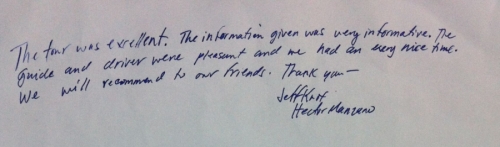 The tour was excellent. The information given was very informative. The
guide and driver were pleasant and we had an very nice time.
We will recommend to our friends. Thank you—
Jeff Knox
Hector Manzano